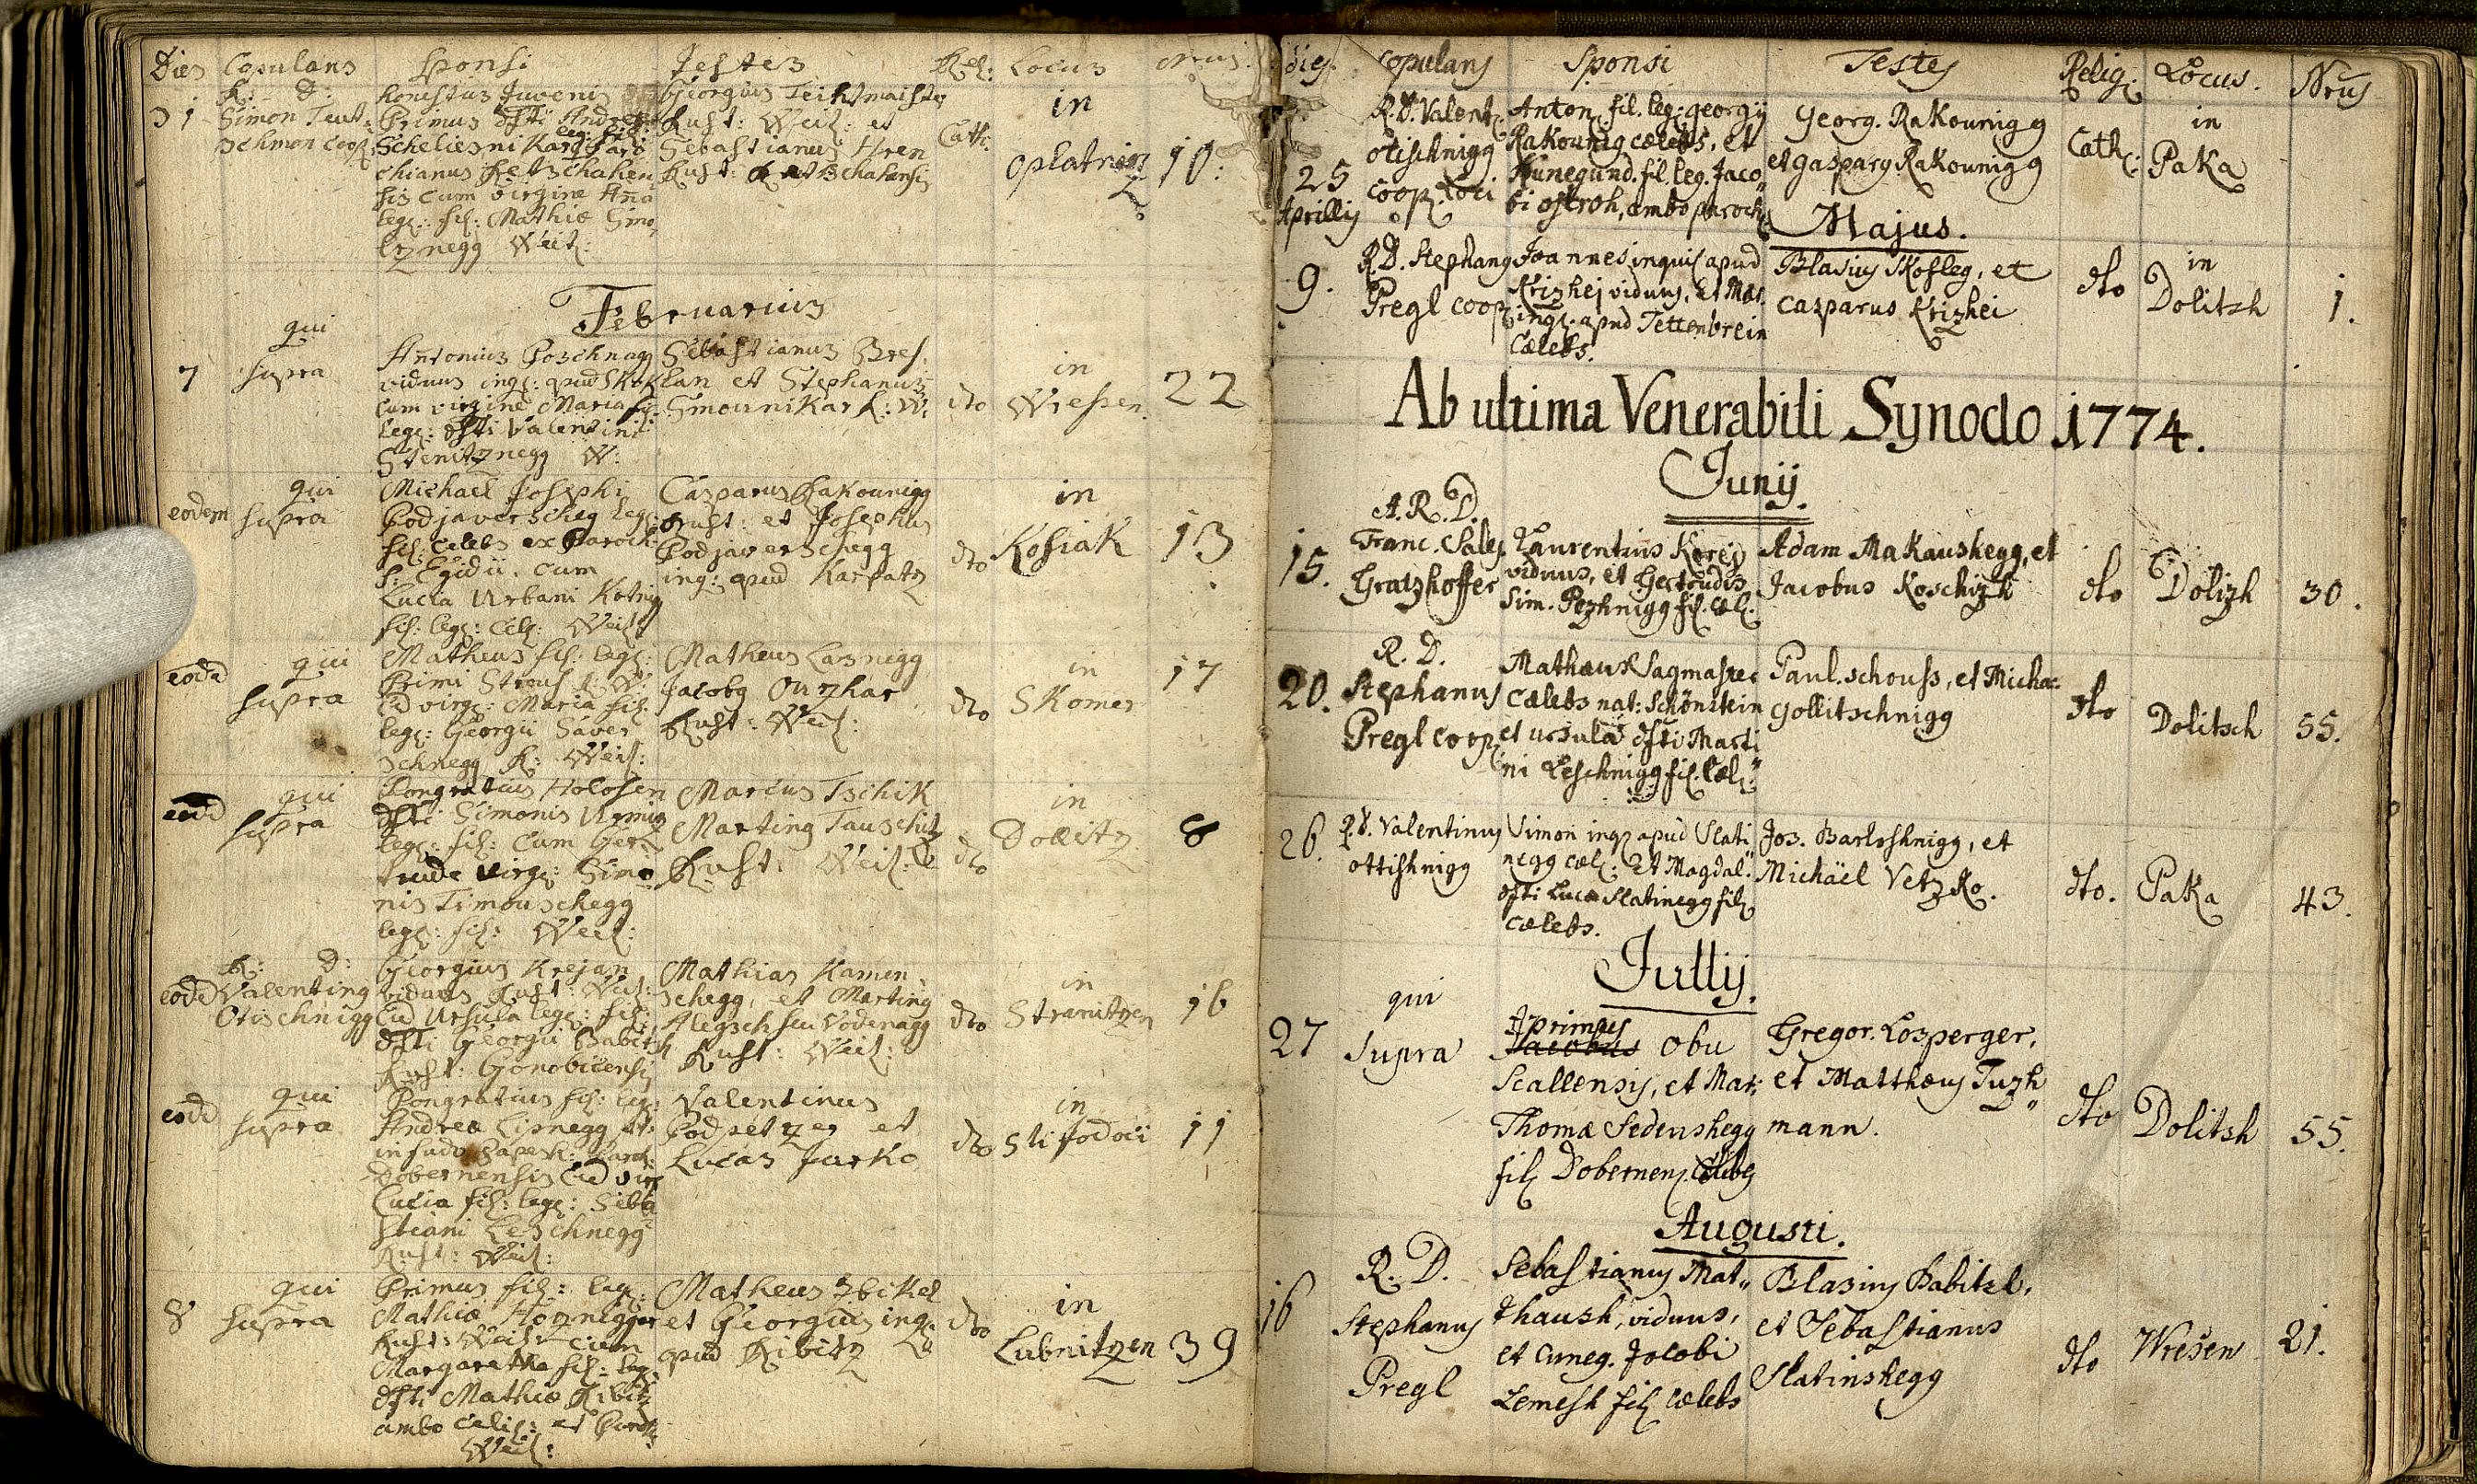 Dies Copulans Sponsi Testes Rel: Locus Nrus
31 R: D: Simon Teut=
schmon coop:
honestus Juvenis
Primus dfti Andreæ
Scheliesni Kar leg: fil: Paro
chianus Retschahen
sis cum virgine Aña
leg: fil: Mathiæ Simo
tznegg Weit:
Georgius Teichtmaister
Rust: Weit: et
Sebastianus Hren
Rust: Retschahensis
Cath:
in
oplatnizz
10:
Februarius
7
qui
supra
Antonius Poschnag
viduus ing: apud Skok
cum virgine Maria fil:
leg: dfti Valentini
Stenitznegg W:
Sebastianus Bres,
lan et Stephanus
Smounikar R: W:
dto
in
Wressen
22
eodem
qui
supra
Michael Josephi
Podjaverscheg leg:
fil: celebs ex Paroch:
S: Egidii, cum
Lucia Urbani Kotnig
fil: leg: cel: Weit:
Casparus Rakounigg
Rust: et Josephus
Podjaverschegg
ing: apud Karpatz
dto
in
Kosiak
13
eodē
qui
supra
Matheus fil: leg:
Primi Strous R: W:
cū virg: Maria fil:
leg: Georgii Saver
schnegg R: Weit:
Matheus Lasnigg
Jacobg Ouzhar
Rust: Weit:
dto
in
Skomer
17
eodē
qui
supra
Pongratius Holosen
dfti Simonis Urmig
leg: fil: cum Ger=
trude virg: Simo
nis Timouschegg
leg: fil: Weit:
Marcus Tschik
Marting Tauschitz
Rust: Weit:
dto
in
Dollitz
8
eodē
R: D:
Valenting
Otischnigg
Georgius Krejan
viduus Rust: Weit:
Cū Ursula leg: fil:
dfti Georgii Babitsch
Rust: Gonobicensis
Mathias Kamen
schegg, et Marting
Alegsch seu Vodenagg
Rust: Weit:
dto
in
Stranitzen
16
eodē
qui
supra
Pongratius fil: leg:
Andreæ Lipnegg
Dobernensis Cū virg
Lucia fil: leg: Seba
stiani Leschnegg
Rust: Weit:
Valentinus
Podpetzeg et
Lucas Jurko
dto
in
Sti Jodoci
11
8
qui
supra
Primus fil: leg:
Mathiæ Hoznegger
Rust: Weit: cum
Margaretha fil: leg:
dfti Mathiæ Ribitz
ambo celib: et Paroch:
Weit:
Matheus Zbikel
et Georgius ing:
apud Ribitz
dto
in
Lubnitzen
39
dies. Copulans Sponsi Testes Relig: Locus. Nrus
25
Aprillis
R.D. Valent.
otischnigg
coop. loci
Anton. fil. leg: georgij
Rakounig cælebs, et
Kunegund. fil. leg. Jaco"
bi ostroh, ambo paroch
Georg. Rakounigg
et gasparg Rakounigg
Cath:
in
Paka
Majus.
9.
R.D. Stephang
Pregl coop
Joannes inquil apud
Krizhej viduus, et Mar.
ing. apud Tettenbrein
cælebs.
Blasius Skofleg, et
casparus Krizhei
dto
in
Dolitzh
1.
Ab ultima Venerabili Synodo 1774.
Junij.
15.
A.R.D.
Franc. Sales
Gratzhoffer
Laurentius Korės
viduus, et Gertrudis
Sim. Pezhnigg fil. cæl.
Adam Makaushegg, et
Jacobus Koschizh
dto
Dolizh
30.
20.
R. D.
Stephanus
Pregl coop
Mathæus Sagmaster
cælebs nat: Schönstein
et ursula dfti Marti
ni Leschnigg fil. cæl:
Paul. schouss, et Micha:
gollitschnigg
dto
Dolitsch
55.
26.
R.D. Valentinus
ottishnigg
Simon ing apud Slati
negg cæl: et Magdal:
dfti Lucæ Slatinegg fil
cælebs.
Jos. Bartoshnigg, et
Michäel Vetzko.
dto.
Paka
43.
Jullij.
27
qui
supra
primus
Jacobus Obu
Scallensis, et Mar:
Thomæ Sedenshegg
fil Dobernen. Cælibes
Gregor. Losperger,
et Matthæus Tuzh"
mann.
dto
Dolitsh
55.
Augusti.
16
R. D.
Stephanus
Pregl
Sebastianus Mat"
thaush, viduus,
et cuneg. Jocobi
Lemesh fil cælebs
Blasius Babitzl,
et Sebastianus
Slatinshegg
dto
Wresen
21.